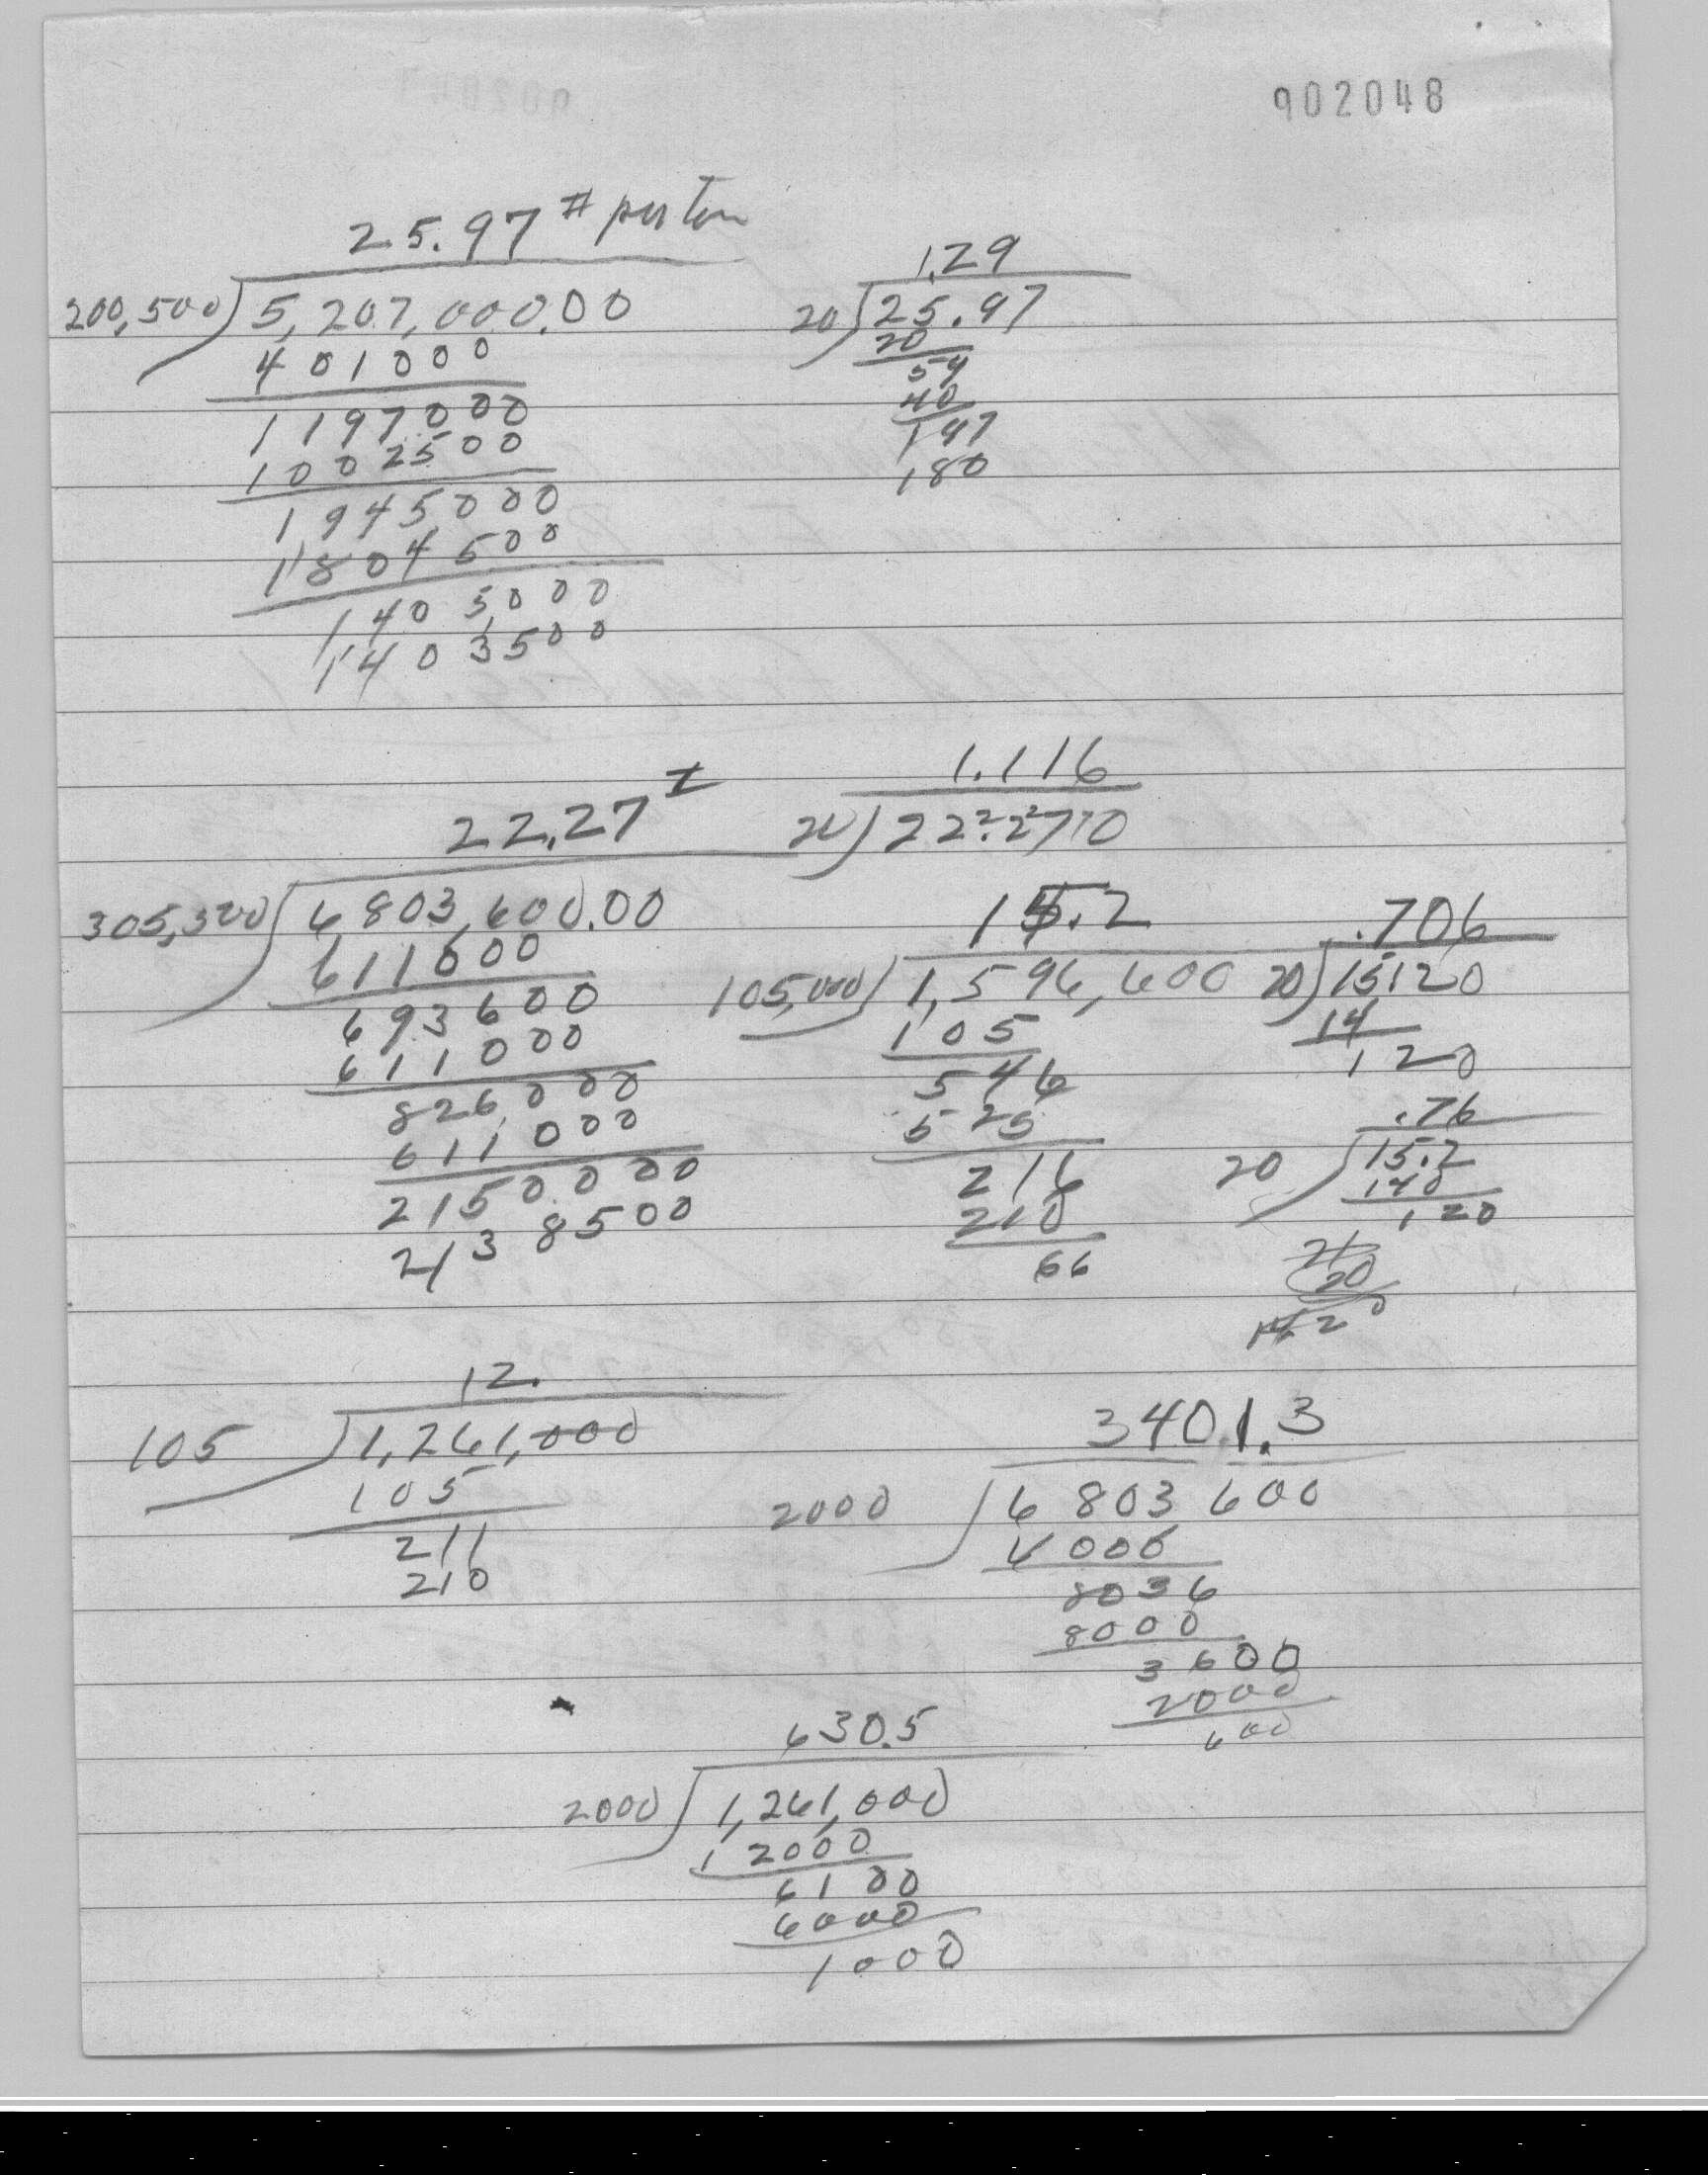 902048
25.97 # per ton
200,500 5,207,000.00
401000
1197000
1002500
1945000
1804500
1405000
1403500
1.29
20 25.97
20
59
40
197
180
22.27 #
305,500 6,803,600.00
611000
693600
611000
826000
611000
2150000
2138500
1.116
20 22.2710
15.2
105,000 1,596,600
105
546
525
216
210
66
.706
20 15120
14
120
.76
20 15.2
140
120
12.
105 1,261,000
105
211
210
3401.3
2000 6803600
6000
8036
8000
3600
2000
600
630.5
2000 1,261,000
12000
6100
6000
1000